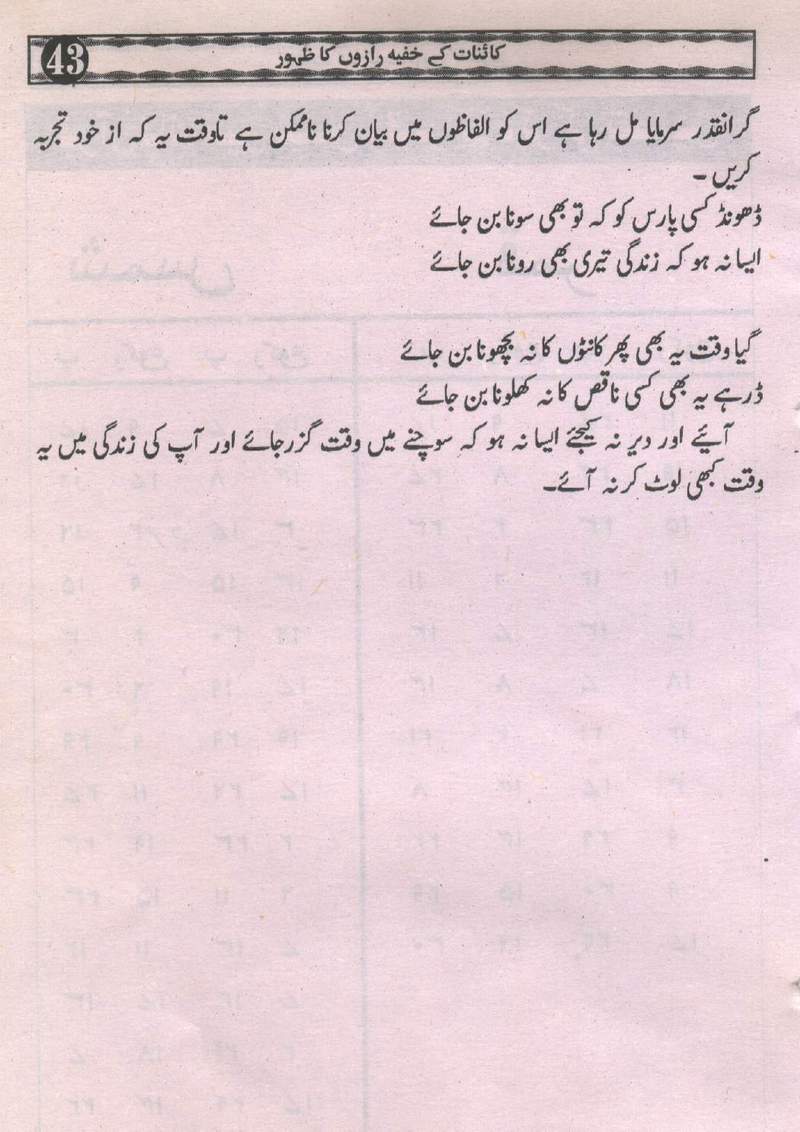 کائنات کے خفیہ رازوں کا ظہور
43
گرانقدر سرمایا مل رہا ہے اس کو الفاظوں میں بیان کرنا ناممکن ہے تاوقت یہ کہ از خود تجربہ
کریں ۔
ڈھونڈ کسی پارس کو کہ تو بھی سونا بن جائے
ایسا نہ ہو کہ زندگی تیری بھی رونا بن جائے
گیا وقت یہ بھی پھر کانٹوں کا نہ بچھونا بن جائے
ڈر ہے یہ بھی کسی ناقص کا نہ کھلونا بن جائے
آیئے اور دیر نہ کیجئے ایسا نہ ہو کہ سوچنے میں وقت گزر جائے اور آپ کی زندگی میں یہ
وقت کبھی لوٹ کر نہ آئے۔